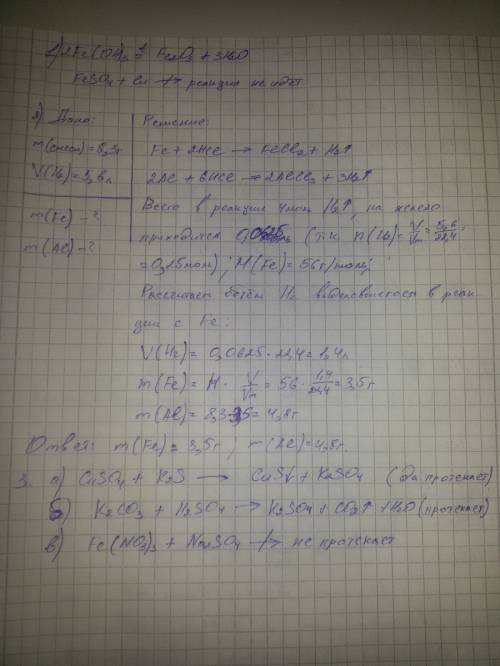 1) 2Fe(OH)3 = Fe2O3 + 3H2O
FeSO4 + Cu ↛ реакция не идёт
2) Дано:
m(смеси) = 8,3г
V(H2) = 5,6 л
m(Fe) - ?
m(Al) - ?
Решение:
Fe + 2HCl → FeCl2 + H2↑
2Al + 6HCl → 2AlCl3 + 3H2↑
Всего в реакции 4моль H2↑, на железо
приходится 0,0625 (т.к n(H2) = V/Vm = 5,6/22,4 =
= 0,25моль); M(Fe) = 56г/моль;
Рассчитаем объём H2 выделившегося в реак-
ции с Fe:
V(H2) = 0,0625 · 22,4 = 1,4л
m(Fe) = M · V/Vm = 56 · 1,4/22,4 = 3,5г
m(Al) = 8,3 - 3,5 = 4,8г
Ответ: m(Fe) = 3,5г; m(Al) = 4,8г.
3. а) CuSO4 + K2S → CuS↓ + K2SO4 (да протекает)
б) K2CO3 + H2SO4 → K2SO4 + CO2↑ + H2O (протекает)
в) Fe(NO3)3 + Na2SO4 ↛ не протекает